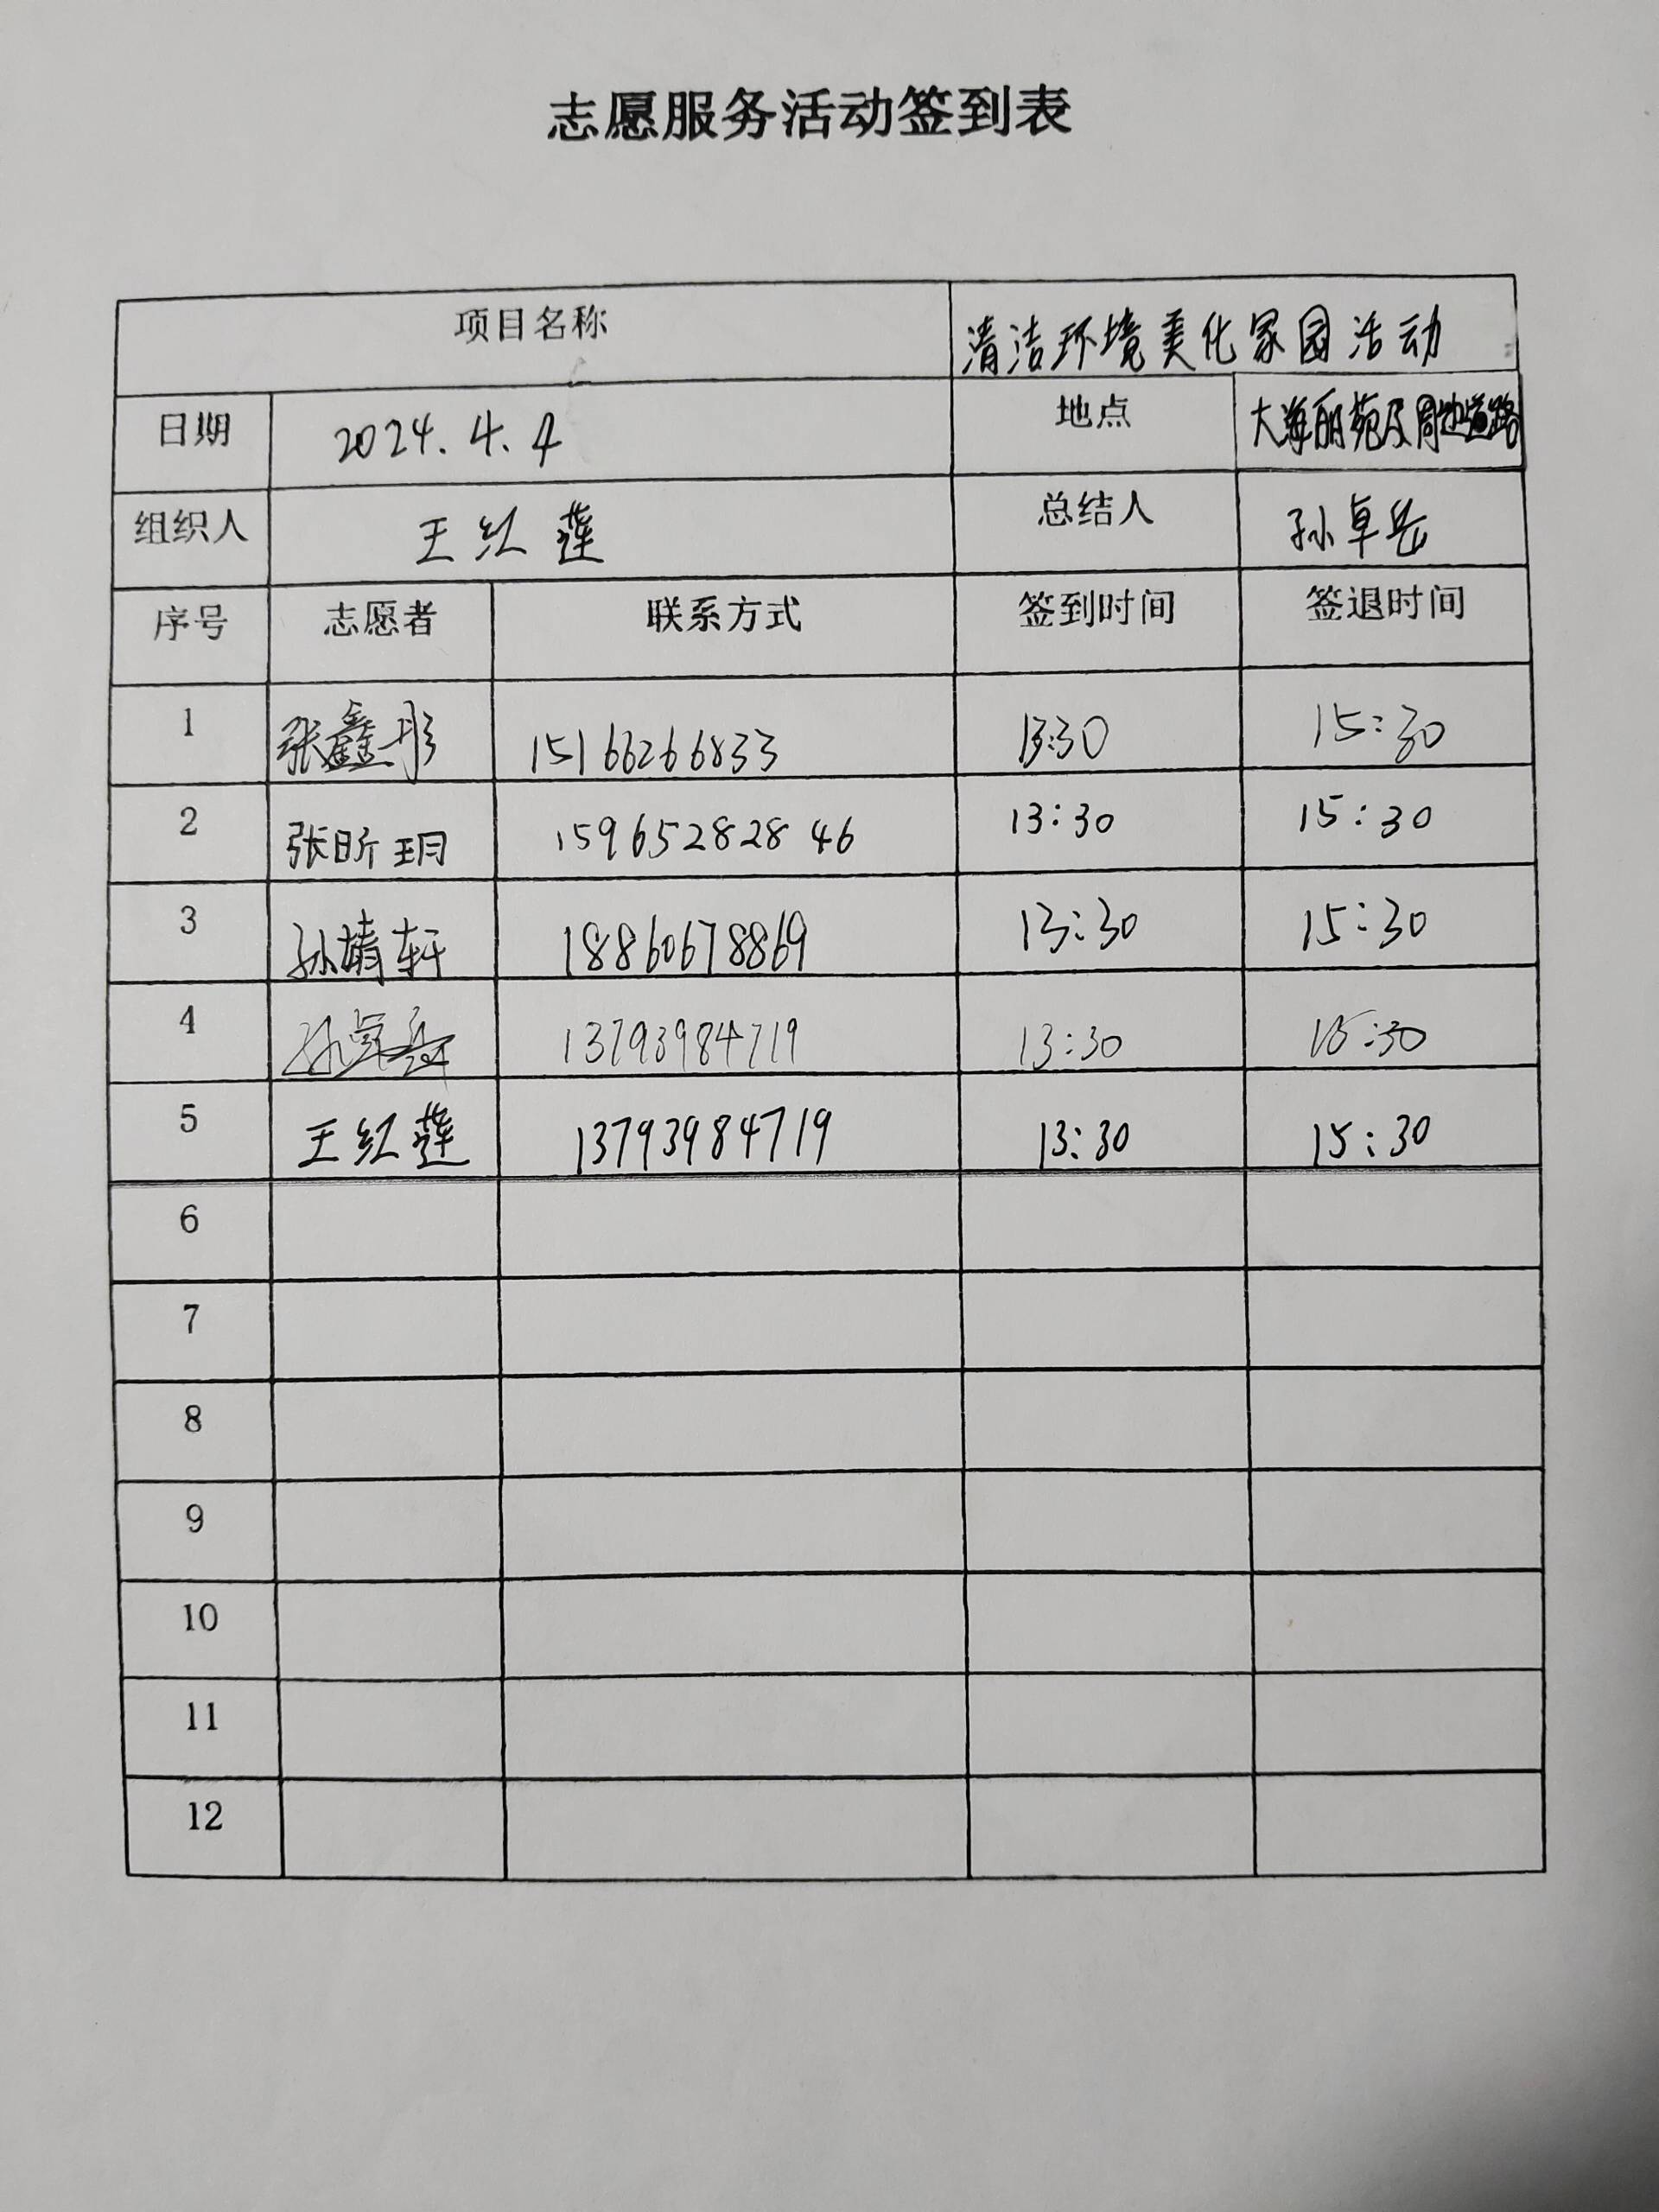 志愿服务活动签到表
项目名称 清洁环境美化家园活动
日期 2024.4.4 地点 大海丽苑及周边道路
组织人 王红莲 总结人 孙卓岳
序号 志愿者 联系方式 签到时间 签退时间
1 张鑫彤 15166266833 13:30 15:30
2 张昕玥 15965282846 13:30 15:30
3 孙婧轩 18860678869 13:30 15:30
4 孙卓岳 13793984719 13:30 15:30
5 王红莲 13793984719 13:30 15:30
6
7
8
9
10
11
12